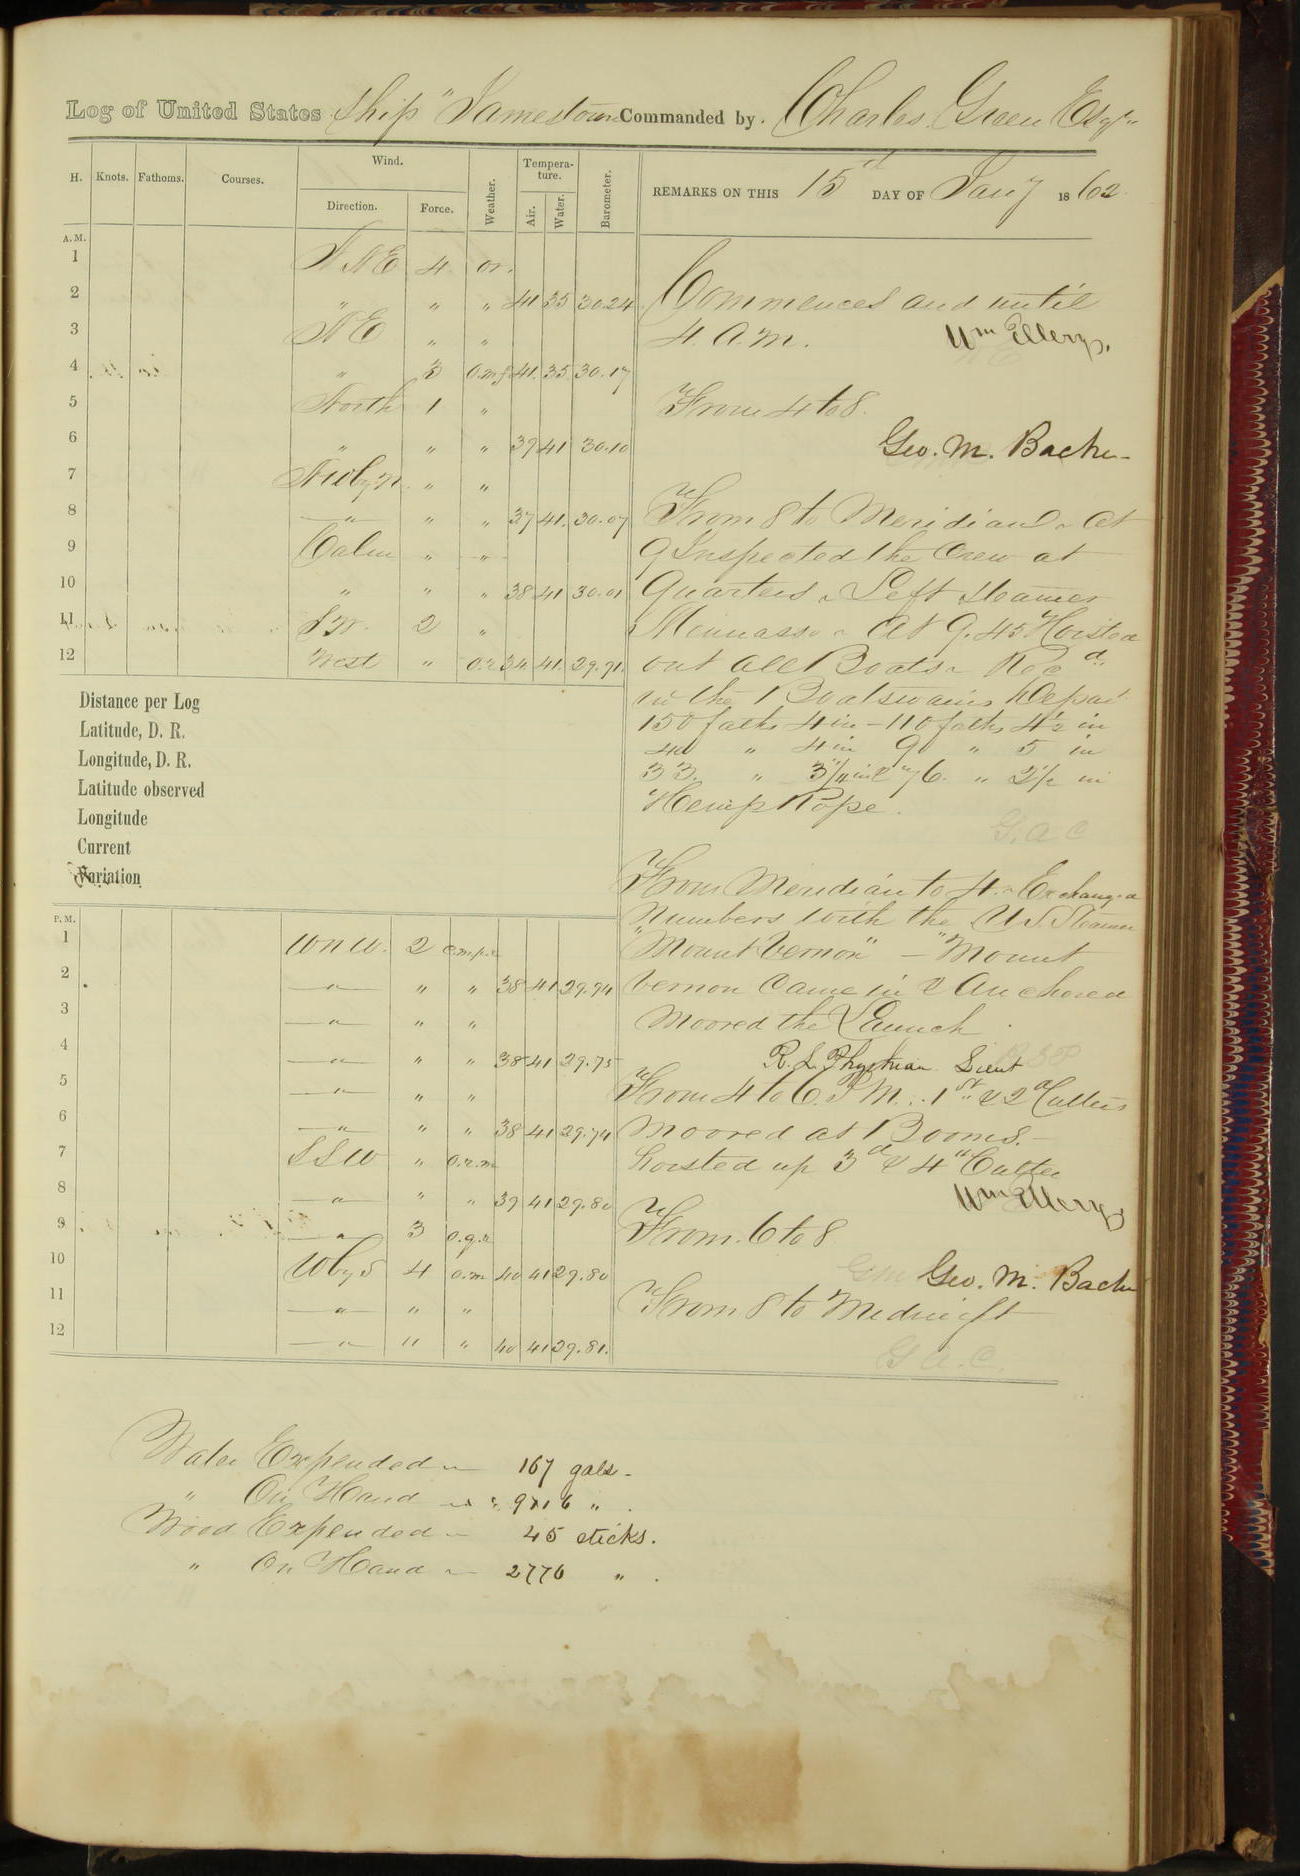 Log of United States Ship "Jamestown Commanded by. Charles Green Esqr
H. Knots. Fathoms. Courses. Wind. Direction. Force. Weather. Tempera-ture. Air. Water. Barometer.
REMARKS ON THIS 15th DAY OF Jany 1862
A.M.
1 NNE 4 or.
2 " " " 41 35 30.24
3 NE " "
4 " 3 41. 35 30.17
5 North 1 "
6 " " " 39 41 30.10
7 NWbyN " "
8 " " " 37 41. 30.07
9 Calm " "
10 " " " 38 41 30.01
11 2 "
12 West " o.r 34 41. 29.91.
Commences and until
4. A.M. Wm Ellery.
From 4 to 8.
Geo. M. Bache
From 8 to Meridian At
9 Inspected the Crew at
Quarters Left Steamer
At 9.45 Hoisted
out all Boats Recd
in the Boatswains Depar
150 faths 4 in - 110 faths 4½ in
40 " 4 in 90 " 5 in
33. " " 2½ in
Hemp Rope.
G. A C
Distance per Log
Latitude, D. R.
Longitude, D. R.
Latitude observed
Longitude
Current
Variation
From Meridian to 4. Exchanged
Numbers with the U.S. Steamer
"Mount Vernon" - "Mount
Vernon came in & Anchored
Moored the Launch
R. L. Phythian Lieut
From 4 to 6. P.M. 1st & 2d Cutters
Moored at Booms.
hoisted up 3d & 4th Cutter
Wm Ellery
From 6 to 8
Geo. M. Bache
From 8 to Midnight
G A. C.
P.M.
1 WNW. 2
2 " " " 38 41 29.94
3 " " "
4 " " " 38 41 29.75
5 " " "
6 " " " 38 41 29.74
7 SSW " o.r.m
8 " " " 39 41 29.80
9 " 3 o.g.r
10 WbyS 4 o.m 40 41 29.80
11 " " "
12 " " " 40 41 29.81.
Water Expended 167 gals-
" On Hand "
Wood Expended 45 sticks.
" On Hand 2776 " .